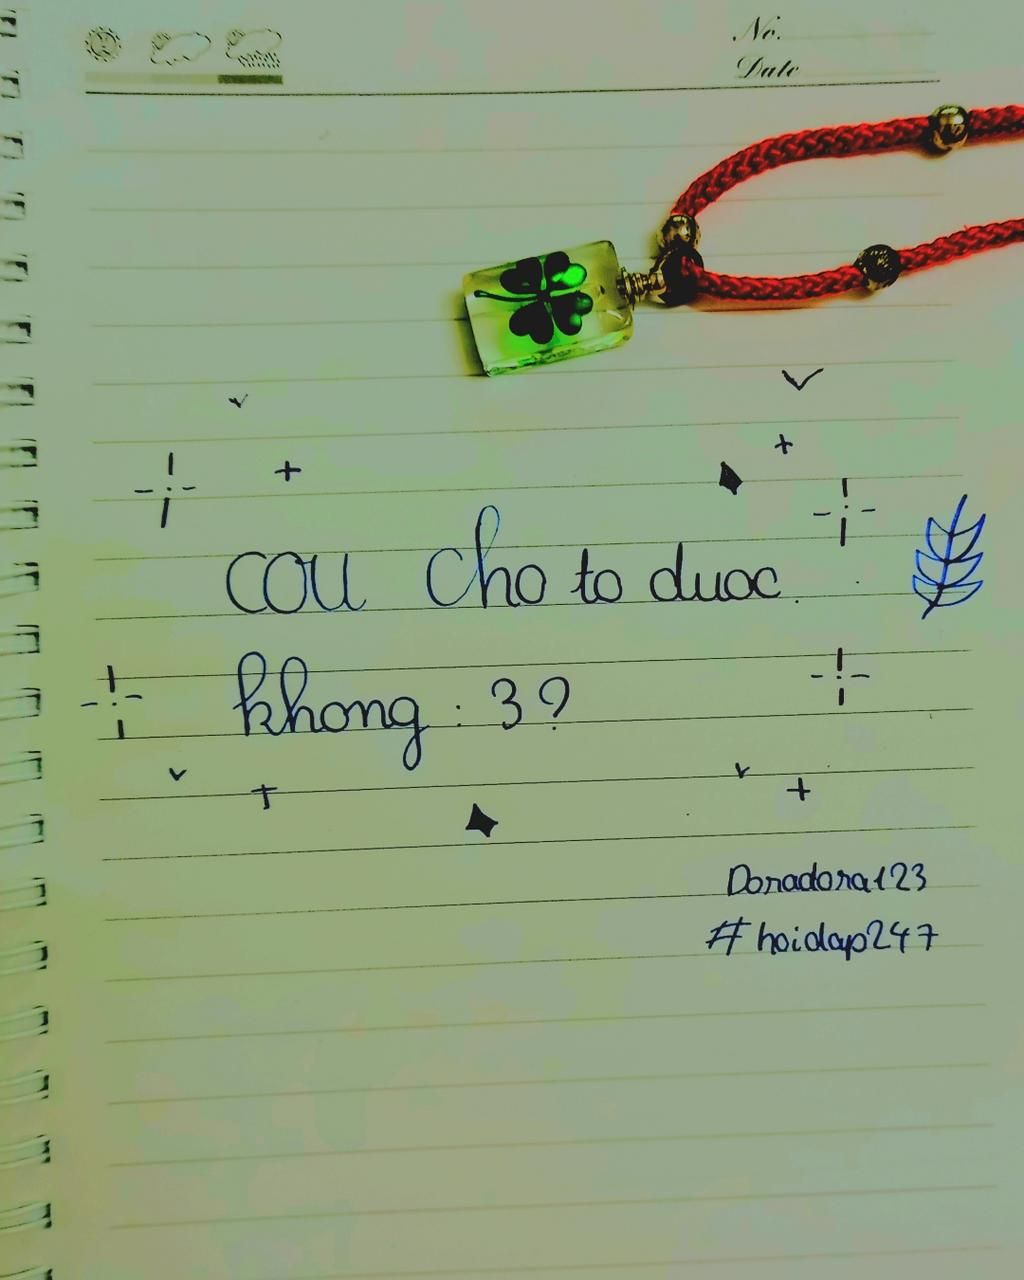 No.
Date
COU Cho to duoc
khong : 3 ?
Doradora123
# hoidap247